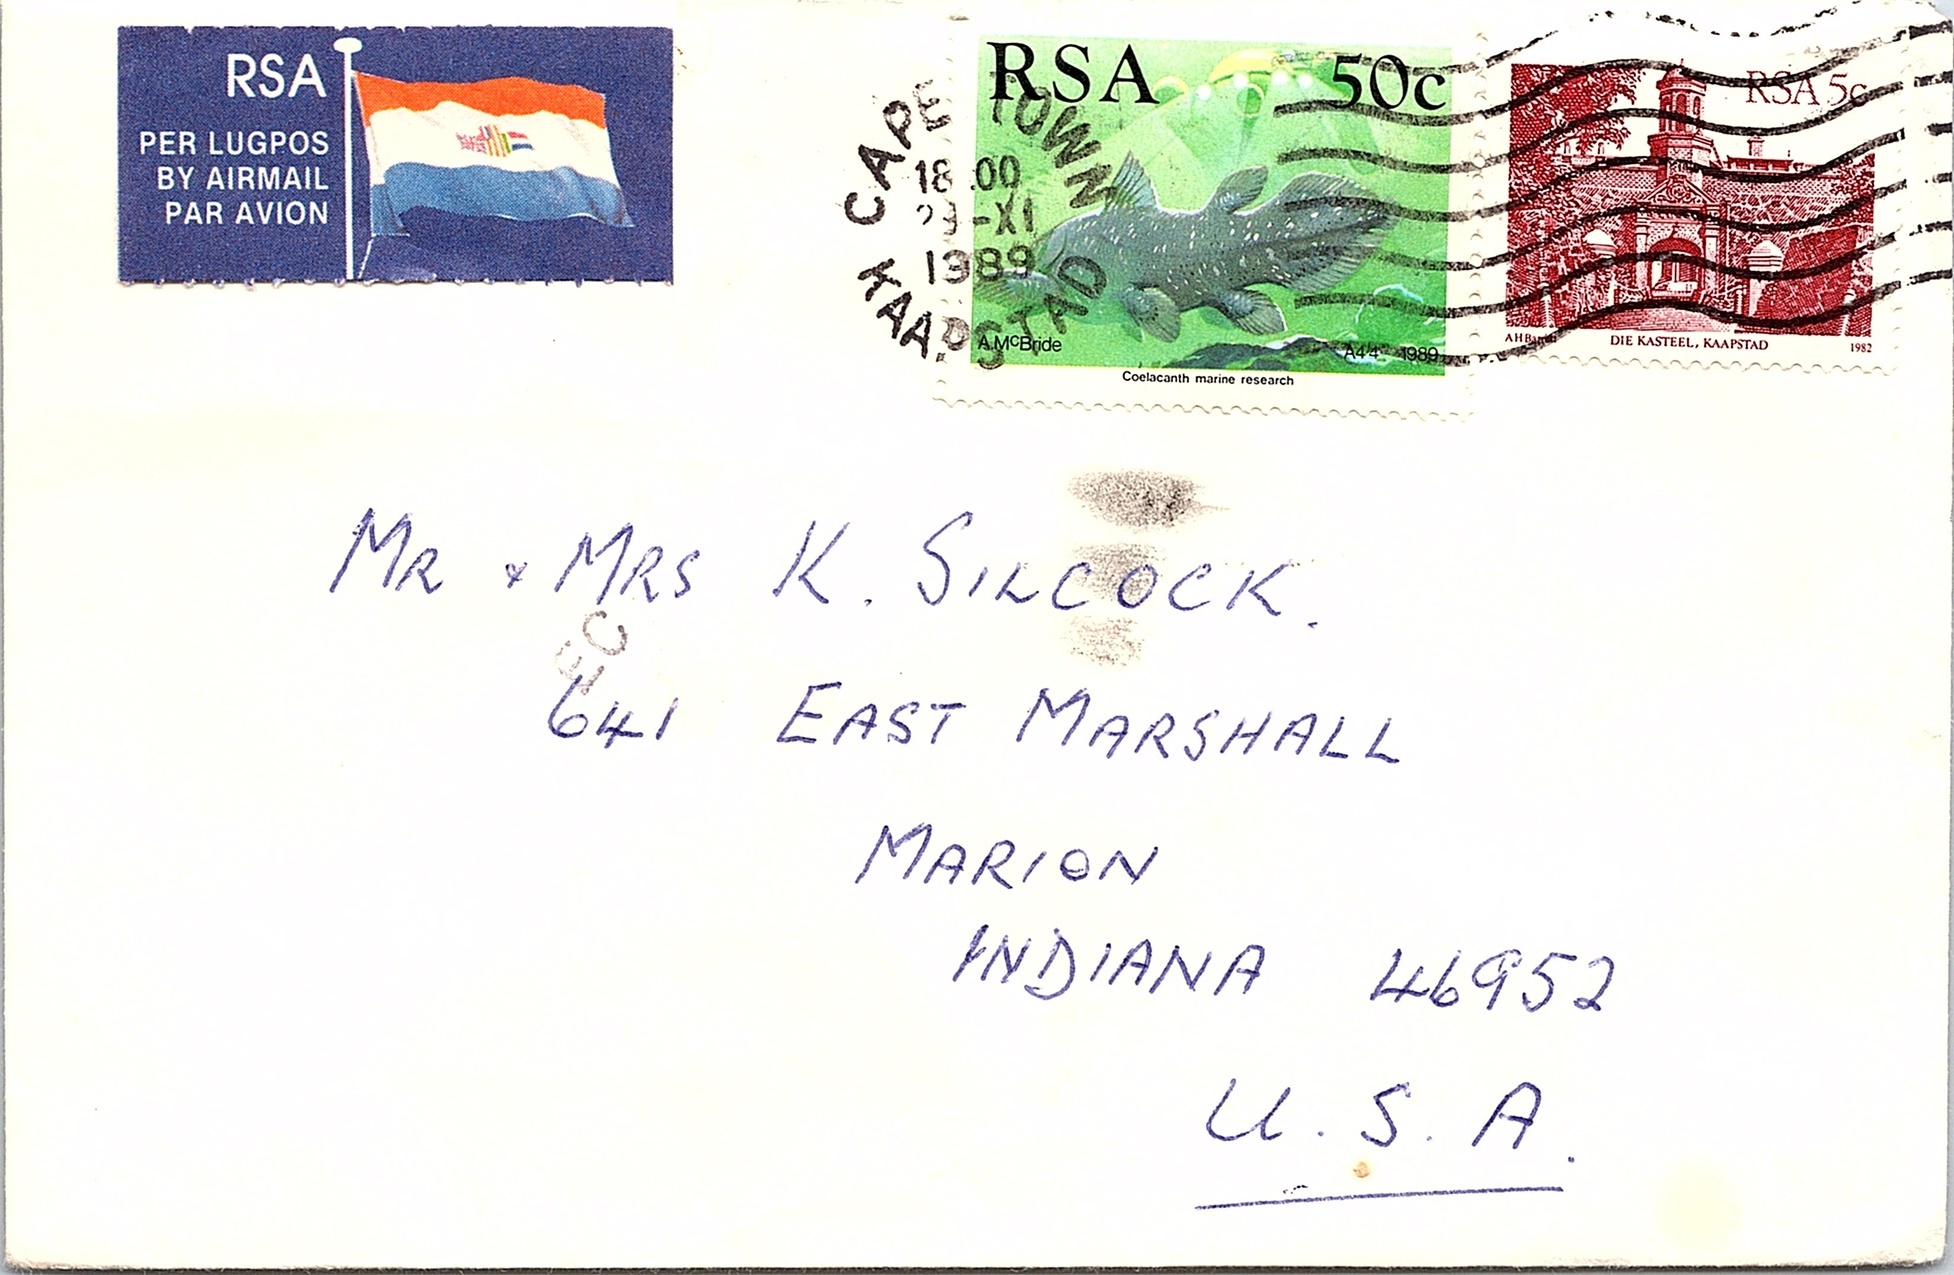 RSA
PER LUGPOS
BY AIRMAIL
PAR AVION
CAPE TOWN
18.00
-XI
1989
KAAPSTAD
RSA 50c
A.McBride
1989
Coelacanth marine research
RSA 5c
DIE KASTEEL, KAAPSTAD
1982
MR & MRS K. SILCOCK.
EC
641 EAST MARSHALL
MARION
INDIANA 46952
U.S.A.